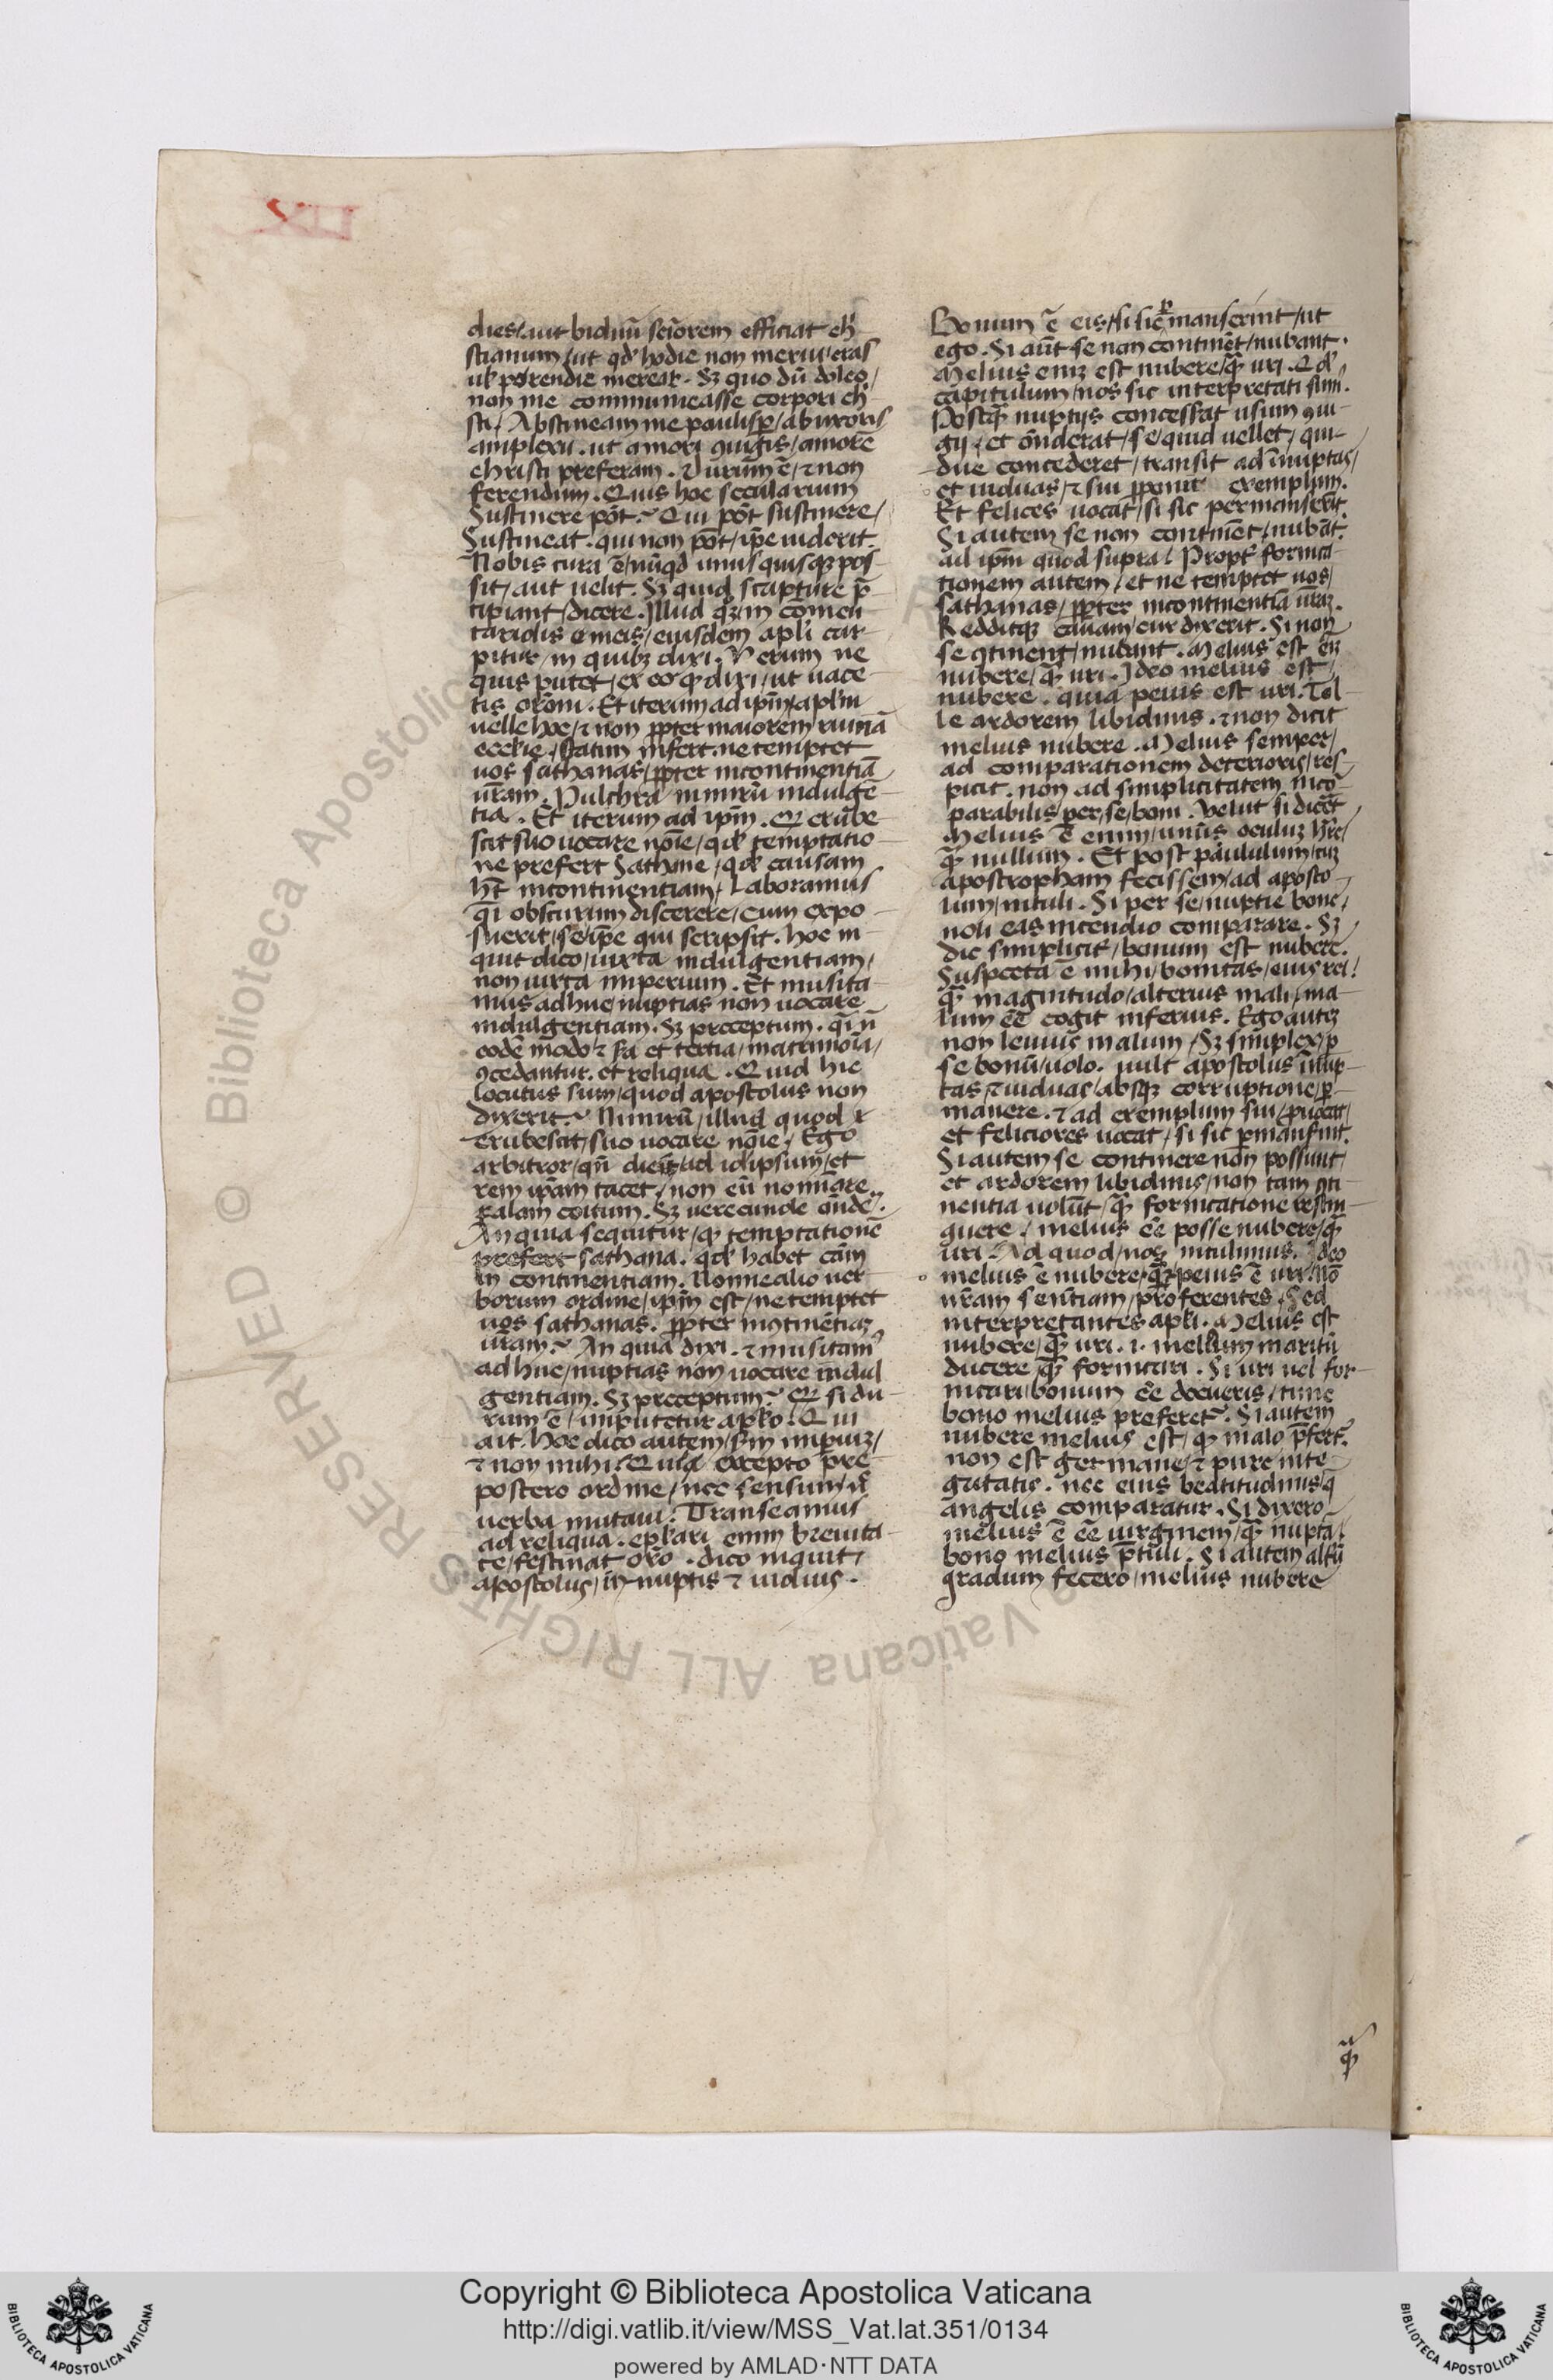 dies/aut biduū sc̄iorem efficiat ch̄r
stianum/ut qd' hodie non merui/cras
ul' perendie merear. Sz quo dū doleo/
non me communicasse corpori ch̄r
sti/Abstineam me paulisp̄/ab uxoris
amplexu. ut amori ꝯiugis/amorē
christi preferam. Durum ē/⁊ non
ferendum. Quis hoc secularium
Sustinere pōt? Qui pōt sustinere/
Sustineat. qui non pōt/ip̄e uiderit.
Nobis cura ē/nūqd unusquisqz pos
sit/aut uelit. Sz quid scripture p̄
cipiant/dicere. Illud qz/in comen
tariolis e meis/eiusdem apl'i car
pitur/in quibz dixi. Verum ne
quis putet/ex eo ꝙ dixi/ut uace
tis orōni. Et iterum ad ip̄m/apl'm
uelle hoc/⁊ non ꝓpter maiorem ruinā
eccl'ie./statim infert. ne temptet
uos sathanas/ꝓpter incontinentiā
ur̄am. Pulchra nimirū indulgē
tia. Et iterum ad ip̄m. Qz erube
scit suo uocare nōie/qd' temptatio
ne prefert Sathane/qd' causam
hēt incontinentiam/Laboramus
qi obscurum discerere/cum expo
suerit/se/ip̄e qui scripsit. hoc in
quit dico/iuxta indulgentiam/
non iuxta imperium. Et musita
mus adhuc/nuptias non uocare
indulgentiam. Sz preceptum. qi n̄
eodē modo ⁊ sc̄a et tertia/matrimōīa/
ꝯcedantur. et reliqua. Quid hic
locutus sum/quod apostolus non
dixerit? Nimirū/illud quod
erubescit/suo uocare nōie/Ego
arbitror/qn̄ dicit/ad id ipsum/et
rem ip̄am tacet/non eū nominare
palam coitum. Sz uerecunde ōnde.
An quia sequitur/ꝙ temptationē
prefert sathana. qd' habet cām
in continentiam. Nonne alio uer
borum ordine/ip̄m est/ne temptet
uos sathanas. ꝓpter inꝯtinētiaz
ur̄am? An quia dixi. ⁊ musitam9
adhuc/nuptias non uocare indul
gentiam. Sz preceptum? Qz si du
rum ē/imputetur apl'o. Qui
ait. hoc dico autem/sm̄ imp̄iuz/
⁊ non mihi. Quia excepto pre
postero ordine/nec sensum/n̄
uerba mutaui. Transeamus
ad reliqua. epl'ari enim breuita
te/festinat orō. dico inquit/
apostolus/in nuptis ⁊ uiduis.
Bonum ē eis/si sic manserint/ut
ego. Si aūt se non continēt/nubant.
Melius eniz est nubere/ꝙ uri. Qd'
capitulum/nos sic interpretati sum9.
Postꝙ nuptijs concesserat usum ꝯiu
gij/et ōnderat/se/quid uellet/qui
due concederet/transit ad īnuptas/
et uiduas/⁊ sui ꝓponit exemplum.
Et felices uocat/si sic permanserīt.
Si autem se non continēt/nubāt.
ad ip̄m quod supra/Propt' fornica
tionem autem/et ne temptet uos/
sathanas/ꝓpter incontinentiā ur̄az.
Redditqz causam/cur dixerit. Si non
se ꝯtinent/nubant. Melius est eīz
nubere/ꝙ uri. Ideo melius est/
nubere. quia peius est uri. Tol
le ardorem libidinis. ⁊ non dicit
melius nubere. Melius semper/
ad comparationem deterioris/res
picit. non ad simplicitatem inco
parabilis/per/se/boni. Velut si dicēt
Melius ē enim/unūs oculuz h̄re/
ꝙ nullum. Et post paululum/cuz
apostropham fecissem/ad aposto
lum/intuli. Si per se/nuptie bone/
noli eas incendio comparare. Sz
dic simplicit'/bonum est nubere.
Suspecta ē mihi/bonitas/eius rei/
ꝙ magnitudo/alterius mali/ma
lum eē cogit inferius. Ego autez
non leuius malum/Sz simplex/p
se bonū/uolo. uult apostolus īnup
tas/⁊ uiduas/absqz corruptione/p
manere. ⁊ ad exemplum sui/ꝓuocat/
et feliciores uocat/si sic p̄manserint.
Si autem se continere non possunt/
et ardorem libidinis/non tam ꝯti
nentia uolūt/ꝙ fornicatione restin
guere/melius eē posse nubere/ꝙ
uri. Ad quod/nos intulimus. Ideo
melius ē nubere/qz peius ē uri. nō
nr̄am sentiam/proferentes. Sed
interpretantes apl'i. Melius est
nubere/ꝙ uri. i. melium maritū
ducere/ꝙ fornicari. Si uri uel for
nicari/bonum eē docueris/tunc
bono melius preferet'. Si autem
nubere melius est/ꝙ malo p̄fert'.
non est germane/⁊ pure inte
gritatis. nec eius beatitudinis/q
angelis comparatur. Si dixero
melius ē eē uirginem/ꝙ nupta/
bono melius p̄tuli. Si autem alt'ū
gradum fecero/melius nubere
ꝙ
Copyright © Biblioteca Apostolica Vaticana
http://digi.vatlib.it/view/MSS_Vat.lat.351/0134
powered by AMLAD·NTT DATA
BIBLIOTECA APOSTOLICA VATICANA
BIBLIOTECA APOSTOLICA VATICANA
Biblioteca Apostolica Vaticana ALL RIGHTS RESERVED ©